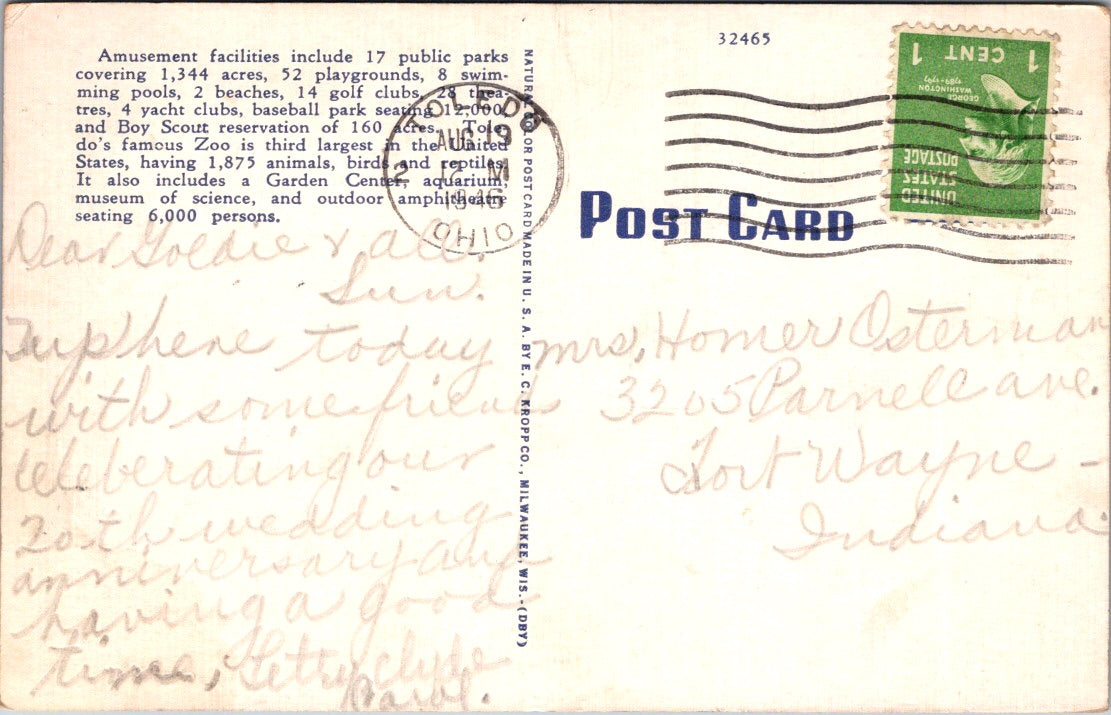 Amusement facilities include 17 public parks
covering 1,344 acres, 52 playgrounds, 8 swim-
ming pools, 2 beaches, 14 golf clubs, 28 thea-
tres, 4 yacht clubs, baseball park seating 12,000,
and Boy Scout reservation of 160 acres. Tole-
do's famous Zoo is third largest in the United
States, having 1,875 animals, birds and reptiles.
It also includes a Garden Center, aquarium,
museum of science, and outdoor amphitheatre
seating 6,000 persons.
Dear Goldie & all,
Sun.
up here today
with some friends
celebrating our
20th wedding
anniversary and
having a good
time,
Clyde
Carol.
NATURAL COLOR POST CARD MADE IN U. S. A. BY E. C. KROPP CO., MILWAUKEE, WIS.-(DBY)
TOLEDO
AUG 19
2 12 M
1946
OHIO
32465
UNITED
STATES
POSTAGE
GEORGE
WASHINGTON
1789-1797
1 CENT 1
POST CARD
Mrs. Homer Osterman
3205 Parnell Ave.
Fort Wayne -
Indiana.